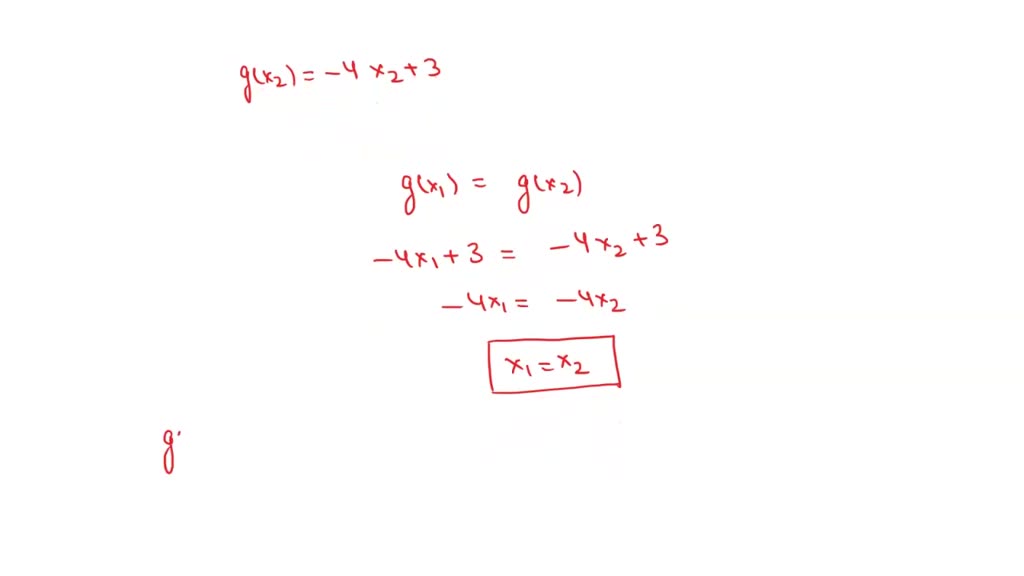 g(x₂) = -4 x₂ + 3
g(x₁) = g(x₂)
-4x₁ + 3 = -4x₂ + 3
-4x₁ = -4x₂
x₁ = x₂
g